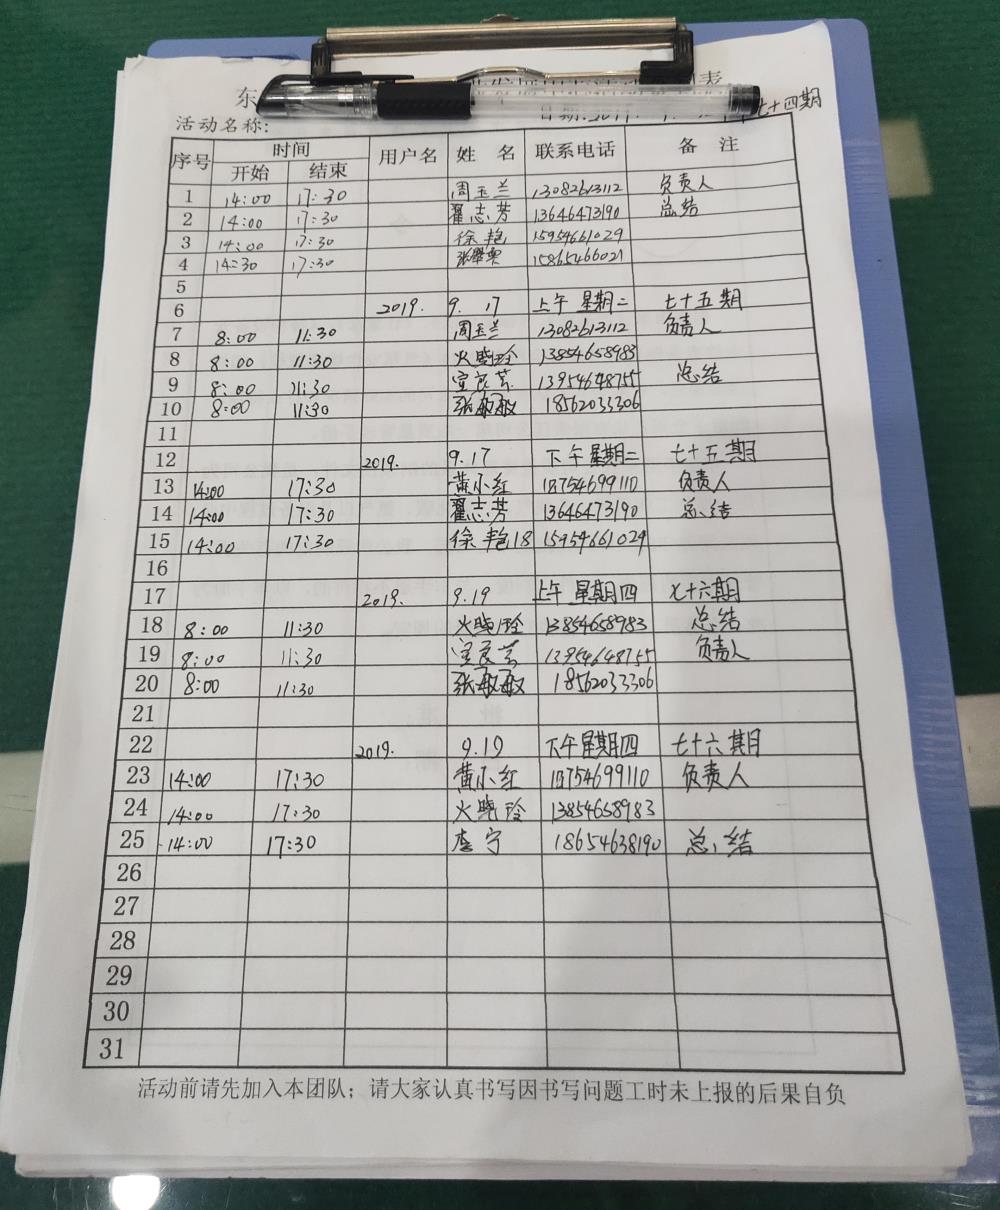 东
表
活动名称: 七十四期
序号 时间 用户名 姓 名 联系电话 备 注
开始 结束
1 14:00 17:30 周玉兰 13082613112 负责人
2 14:00 17:30 翟志芳 13646473190 总结
3 14:00 17:30 徐艳 15954661029
4 14:30 17:30 15865466021
5
6 2019. 9.17 上午 星期二 七十五期
7 8:00 11:30 周玉兰 13082613112 负责人
8 8:00 11:30 火晓玲 13854658983
9 8:00 11:30 13954648755 总结
10 8:00 11:30 张敏敏 18562033306
11
12 2019. 9.17 下午 星期二 七十五期
13 14:00 17:30 黄小红 18754699110 负责人
14 14:00 17:30 翟志芳 13646473190 总结
15 14:00 17:30 徐艳18 15954661029
16
17 2019. 9.19 上午 星期四 七十六期
18 8:00 11:30 火晓玲 13854658983 总结
19 8:00 11:30 13954648755 负责人
20 8:00 11:30 张敏敏 18562033306
21
22 2019. 9.19 下午星期四 七十六期
23 14:00 17:30 黄小红 18754699110 负责人
24 14:00 17:30 火晓玲 13854658983
25 14:00 17:30 李宁 18654638190 总结
26
27
28
29
30
31
活动前请先加入本团队；请大家认真书写因书写问题工时未上报的后果自负